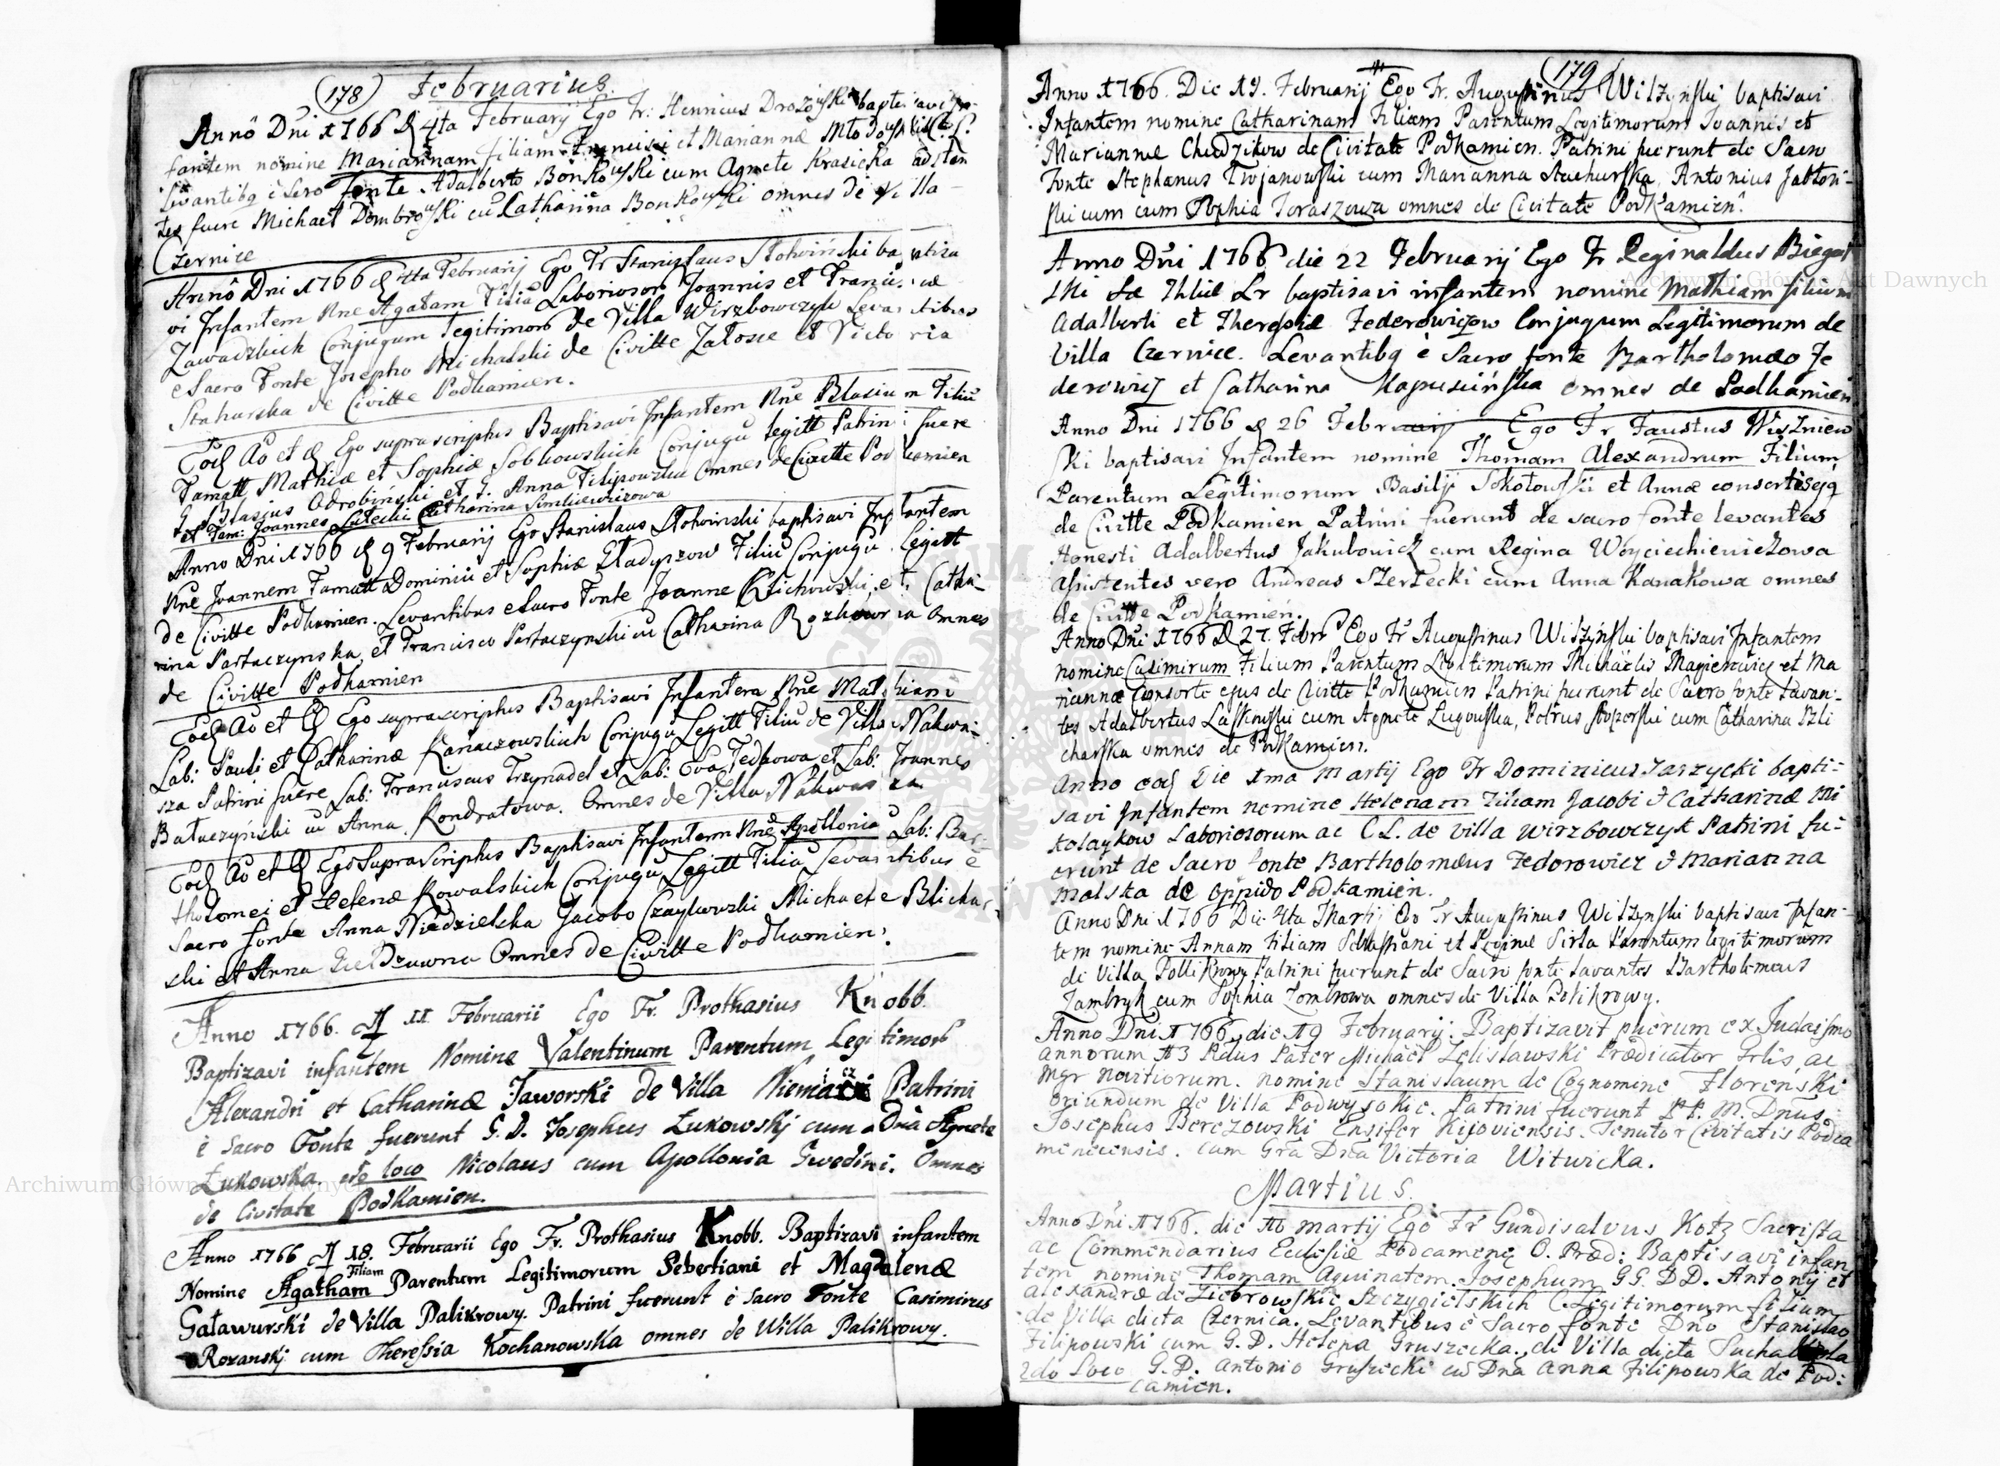 (178) Februarius.
Anno Dni 1766 d 4ta Februarij Ego Fr: Henricus baptisavi In-
fantem nomine Mariannam filiam Francisci et Mariannæ
Levantibq è Sacro fonte Adalberto Bonkowski cum Agnete Krasicka adsten
tes fuere Michael Dombrowski cu Catharina Bonkowski omnes de Villa
Czernice
Anno Dni 1766 d 4ta Februarij Ego Fr Stanislaus Stohwiński baptiza
vi Infantem Nne Agatam Filia Laboriosor Joannis et Franciscæ
Zawadzkich Conjugum legitimor de Villa Wirzbowczyk Levantibus
e Sacro Fonte Josepho Michalski de Civitte Załosce et Victoria
Staharska de Civitte Podkamien.
Eod Ao et d Ego suprascriptus Baptisavi Infantem Nne Blasium Filiu
Famatt Mathiæ et Sophiæ Sobkowskich Conjugu legitt Patrini fuere
Blasius Odrobiński et G. Anna Filipowska Omnes de Civitte Podkamien
et Fam: Joannes Catharina Sinkiewiczowa
Anno Dni 1766 d 9 Februarij Ego Stanislaus Stohwinski baptisavi Infantem
Nne Joannem Famatt Dominici et Sophiæ Filiu Conjugu Legitt
De Civitte Podkamien. Levantibus e Sacro Fonte Joanne et Catha-
rina Partaczynska et Francisco Partaczynski cu Catharina omnes
de Civitte Podkamien
Eod Ao et d Ego suprascriptus Baptisavi Infantem Nne Mathiam
Lab: Pauli et Catharinæ Karaczowskich Conjugu Legitt Filiu de Villa Nakwa-
sza Patrini fuere Lab: Franciscus Trzynadel et Lab: Eva Fedkowa et Lab: Joannes
Bałuczyński cu Anna Kondratowa. Omnes de Villa Nakwasza
Eod Ao et d Ego Supra Scriptus Baptisavi Infantem Nne Apollonia Lab: Bar-
tholomei et Helenæ Kowalskich Conjugu Legitt Filia Levantibus e
Sacro fonte Anna Niedzielska Jacobo Czaykowski Michaele Blicha
ski et Anna Omnes de Civitte Podkamien.
Anno 1766. d 11 Februarii Ego Fr. Prothasius Knobb.
Baptizavi infantem Nomine Valentinum Parentum Legitimor
Alexandri et Catharinæ Jaworski de Villa Patrini
è Sacro Fonte fuerunt G. D. Josephus Łukowskj cum Dna Agnete
Łukowska. de loco Nicolaus cum Apollonia Gwedini. Omnes
de Civitate Podkamien.
Anno 1766 d 18. Februarii Ego Fr. Prothasius Knobb. Baptizavi infantem
Nomine Agatham Filiam Parentum Legitimorum Sebestiani et Magdalenæ
Gatawurski de Villa Palikrowy. Patrini fuerunt è Sacro Fonte Casimirus
Rozanskj cum Theressia Kochanowska omnes de Willa Palikrowy.
(179)
Anno 1766. Die 19. Februarij Ego Fr. Augustinus Wilzyński baptisavi
Infantem nomine Catharinam Filiam Parentum Legitimorum Joannis et
Mariannæ Chudzikow de Civitate Podkamien. Patrini fuerunt de Sacro
Fonte Stephanus Trojanowski cum Marianna Stachurska, Antonius Jabłon-
ski cum Sophia Toraszowa omnes de Civitate Podkamien.
Anno Dni 1766 die 22 Februarij Ego Fr Reginaldus
Lr baptisavi infantem nomine Mathiam filium
Adalberti et Theresiæ Federowiczow Conjugum Legitimorum de
Villa Czernice. Levantibq è Sacro fonte Bartholomæo Fe
derowicz et Catharina Kapuscińska omnes de Podkamien
Anno Dni 1766 d 26 Februarij Ego Fr Faustus Wiszniew
ski baptisavi Infantem nomine Thomam Alexandrum Filium
Parentum Legitimorum Basilij Sokołowski et Annæ consortis ejq
de Civitte Podkamien Patrini fuerunt de sacro fonte levantes
Honesti Adalbertus Jakubowicz cum Regina Woyciechiewiczowa
Assistentes vero Andreas Szertecki cum Anna Kanakowa omnes
de Civitte Podkamien.
Anno Dni 1766 d 27. Febr Ego Fr Augustinus Wilzyński baptisavi Infantem
nomine Casimirum Filium Parentum Legitimorum Michaelis Magierowicz et Ma
riannæ Consorte ejus de Civitte Podkamien Patrini fuerunt de Sacro fonte Levan-
tes Adalbertus Laskowski cum Agnete Lugowska, Petrus cum Catharina Szli
charska omnes de Podkamien.
Anno eod Die 1ma Martij Ego Fr Dominicus Jaszycki bapti-
savi Infantem nomine Helenam Filiam Jacobi & Catharinæ Mi
kolaykow Laboriosorum ac C L. de villa Wirzbowczyk Patrini fu-
erunt de Sacro fonte Bartholomæus Fedorowicz & Marianna
Malska de oppido Podkamien.
Anno Dni 1766 Die 4ta Martij Ego Fr Augustinus Wilzynski baptisavi Infan-
tem nomine Annam Filiam Sebastiani et Reginæ Parentum legitimorum
de Villa Pollikrowy Patrini fuerunt de Sacro fonte Levantes Bartholomeus
Zambryk cum Sophia Zombrowa omnes de Villa Polikrowy.
Anno Dni 1766. die 19 Februarij. Baptizavit puerum ex Judaismo
annorum 13 Rdus Pater Michael Zelisławski Prædicator Grlis, ac
Mgr Novitiorum. nomine Stanislaum de Cognomine Florenski
oriundum de Villa Podwysokie. Patrini fuerunt PP. M. Dnus
Josephus Berezowski Ensifer Kijoviensis. Tenutor Civitatis Podca
meneensis. cum Gra Dna Victoria Witwicka.
Martius.
Anno Dni 1766. die 16 Martij Ego Fr Gundisalvus Kotz Sacrista
ac Commendarius Ecclesiæ Podcamenę O. Præd: Baptisavi infan
tem nomine Thomam Aquinatem Josephum GG. DD. Antonij et
Alexandræ de Ziebrowskie Szczygielskich C. Legitimorum filium
de Villa dicta Czernica. Levantibus è Sacro fonte Dno Stanislao
Filipowski cum G. D. Helena Gruszecka. de Villa dicta
2do Loco G. D. Antonio Gruszecki cu Dna Anna Filipowska de Pod:
camien.
Archiwum Główne Akt Dawnych
Archiwum Główne Akt Dawnych